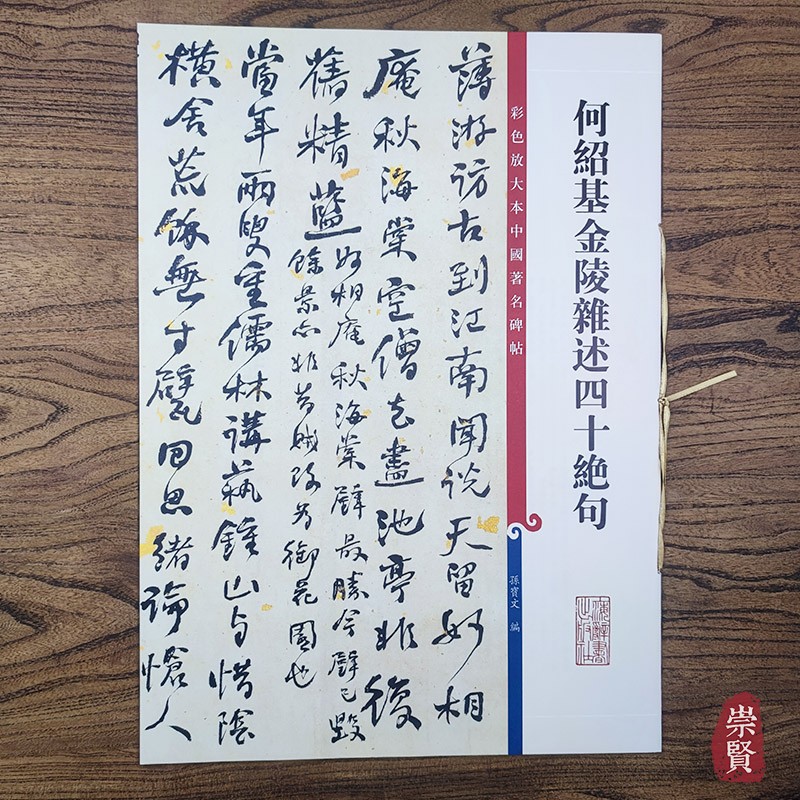 何紹基金陵雜述四十絶句
彩色放大本中國著名碑帖
孫寶文 編
薄游訪古到江南聞説天留妙相
庵秋海棠空僧去盡池亭非復
舊精藍
妙相庵秋海棠壁最勝今壁已毀
餘景亦非昔賊改為御花園也
當年兩叟重儒林講藝鍾山与惜陰
橫舍荒餘無寸甓回思緒論愴人
崇賢